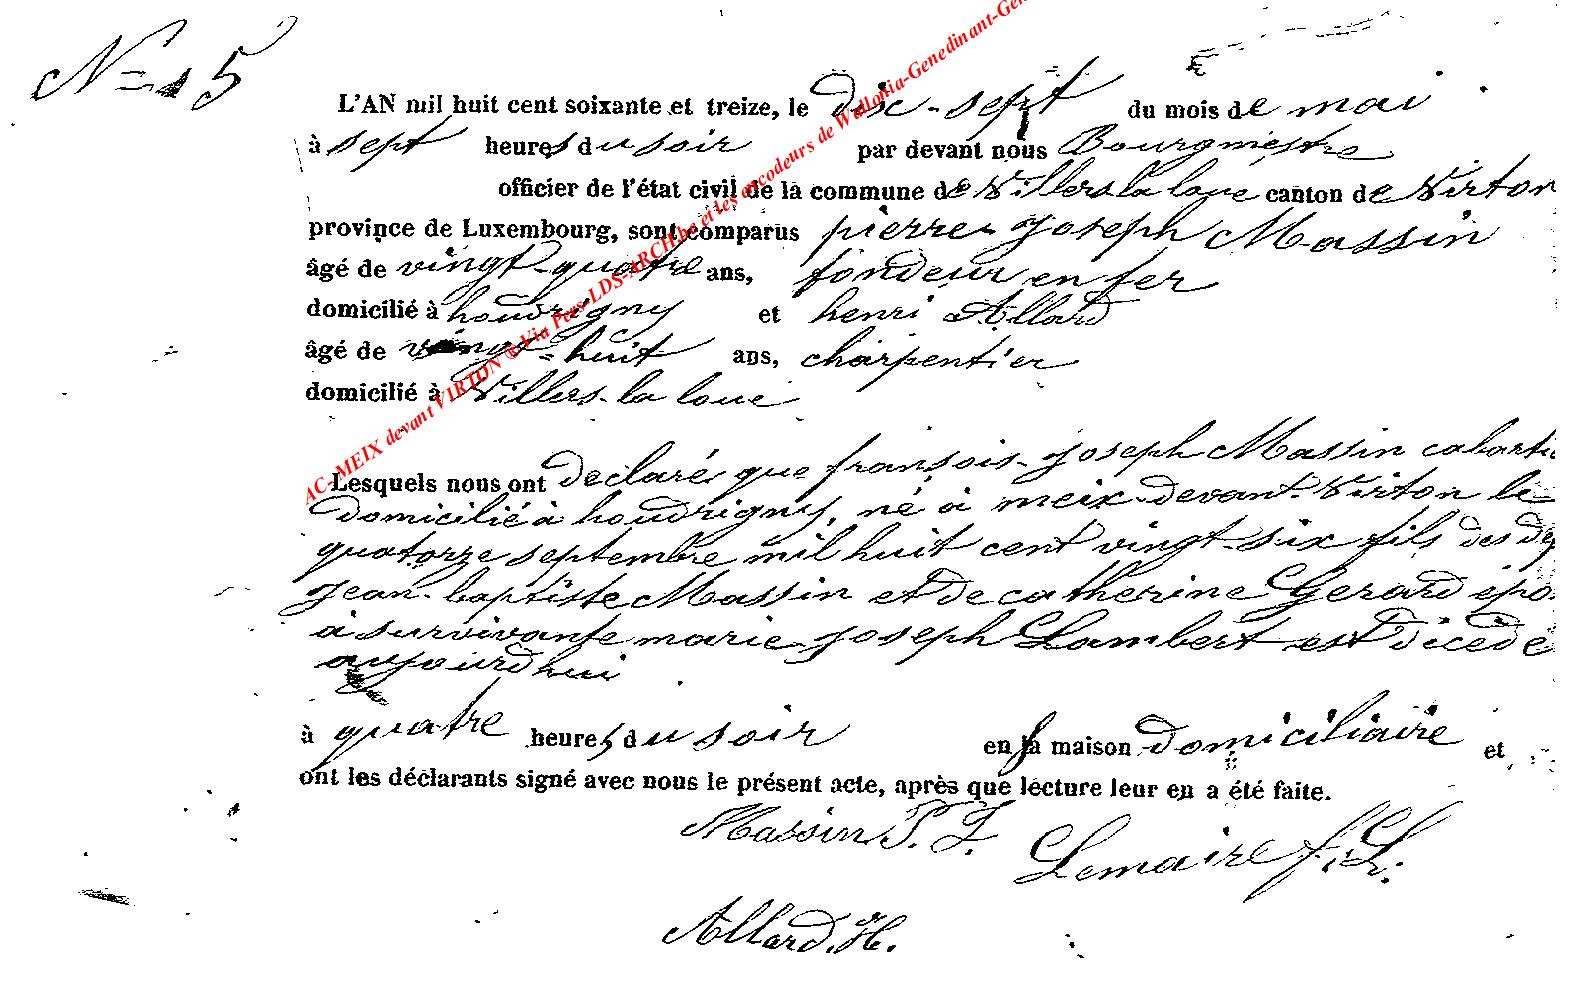 N=15
L'AN mil huit cent soixante et treize, le dix-sept du mois de mai
à sept heures du soir par devant nous Bourgmestre
officier de l'état civil de la commune de Villers la loue canton de Virton
province de Luxembourg, sont comparus pierre-joseph Massin
âgé de vingt-quatre ans, fondeur en fer
domicilié à houdrigny et henri Allard
âgé de vingt-huit ans, charpentier
domicilié à Villers-la loue
Lesquels nous ont declaré que françois-joseph Massin cabarti
domicilié à houdrigny, né à meix-devant-Virton le
quatorze septembre mil huit cent vingt-six fils des
jean-baptiste Massin et de catherine Gerard épo
à survivante marie-joseph Lambert est dicedé
aujourdhui
à quatre heures du soir en sa maison domiciliaire et
ont les déclarants signé avec nous le présent acte, après que lecture leur en a été faite.
Massin P. J.
Lemaire f. L.
Allard. H.
AC-MEIX devant VIRTON © Via Pers-LDS-ARCH.be et les encodeurs de Wallonia-Genedinant-Gen